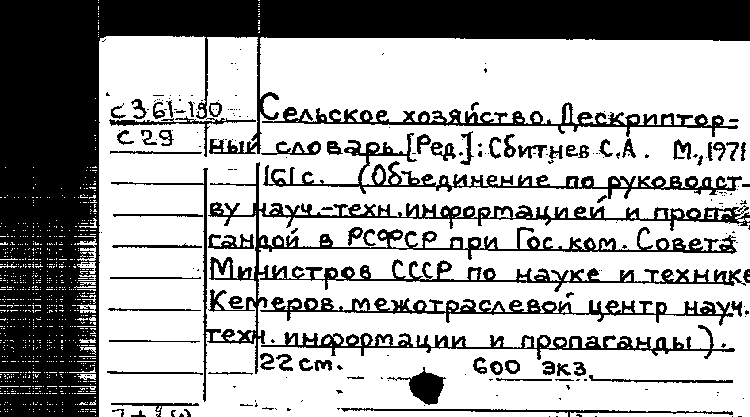 С361-190
С29
Сельское хозяйство. Дескриптор-
ный словарь. [Ред.]: Сбитнев С.А. М., 1971
161 с. (Объединение по руководст-
ву науч.-техн. информацией и пропа-
гандой в РСФСР при Гос. ком. Совета
Министров СССР по науке и технике
Кемеров. межотраслевой центр науч.
техн. информации и пропаганды).
22 см. 600 экз.